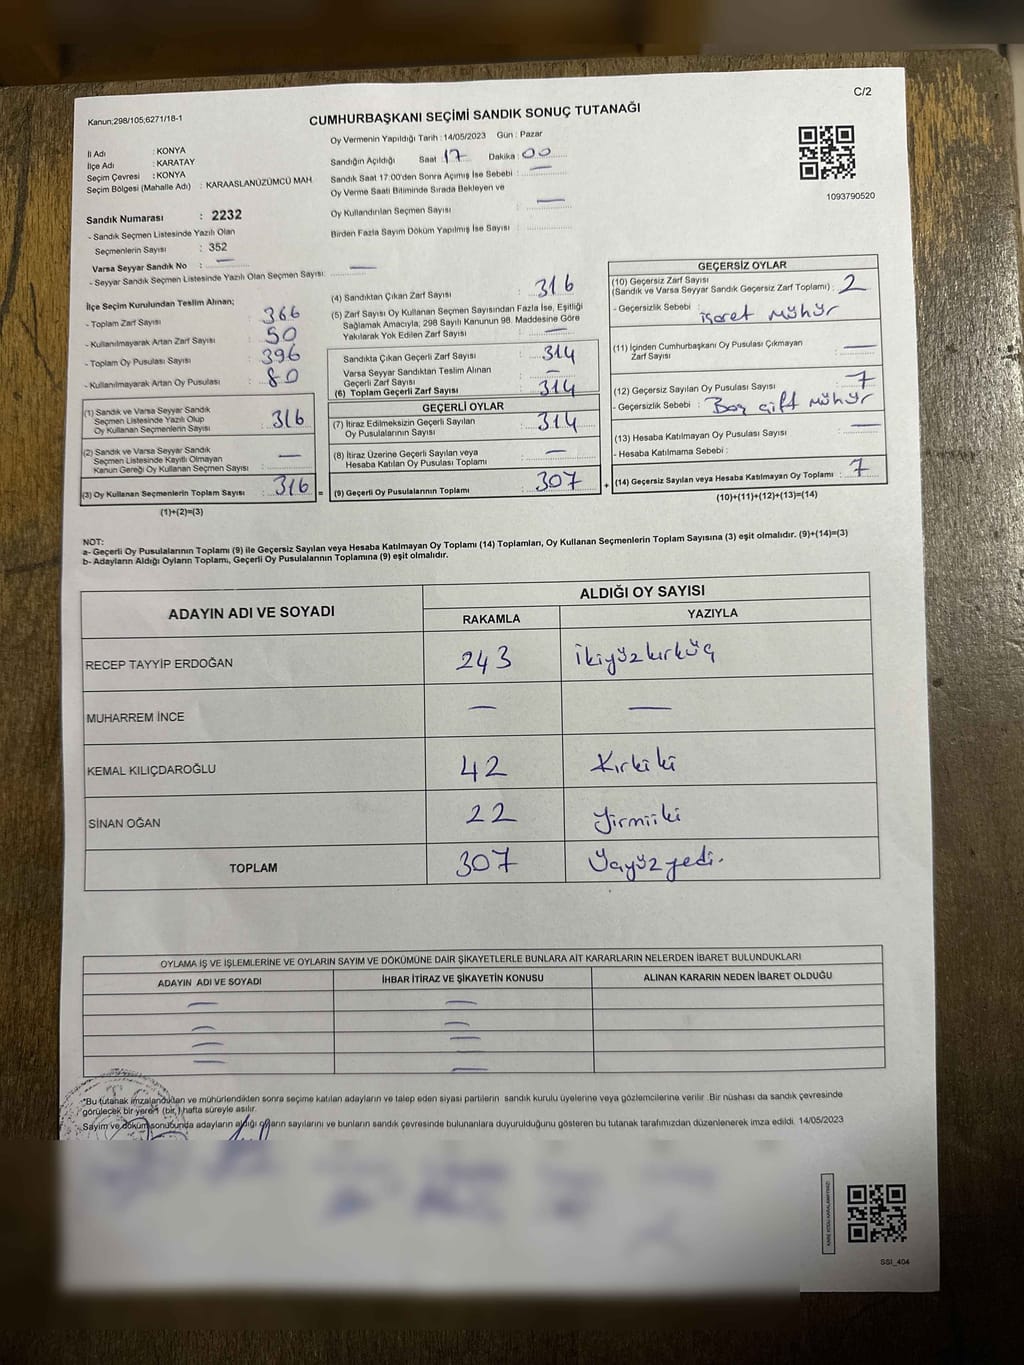 C/2
Kanun;298/105;6271/18-1
CUMHURBAŞKANI SEÇİMİ SANDIK SONUÇ TUTANAĞI
İl Adı : KONYA
İlçe Adı : KARATAY
Seçim Çevresi : KONYA
Seçim Bölgesi (Mahalle Adı) : KARAASLANÜZÜMCÜ MAH.
Sandık Numarası : 2232
- Sandık Seçmen Listesinde Yazılı Olan
Seçmenlerin Sayısı : 352
Varsa Seyyar Sandık No : —
- Seyyar Sandık Seçmen Listesinde Yazılı Olan Seçmen Sayısı: —
Oy Vermenin Yapıldığı Tarih : 14/05/2023 Gün : Pazar
Sandığın Açıldığı Saat 17 Dakika : 00
Sandık Saat 17:00'den Sonra Açımış İse Sebebi : —
Oy Verme Saati Bitiminde Sırada Bekleyen ve
Oy Kullandırılan Seçmen Sayısı : —
Birden Fazla Sayım Döküm Yapılmış İse Sayısı :
1093790520
İlçe Seçim Kurulundan Teslim Alınan;
- Toplam Zarf Sayısı : 366
- Kullanılmayarak Artan Zarf Sayısı : 50
- Toplam Oy Pusulası Sayısı : 396
- Kullanılmayarak Artan Oy Pusulası : 80
(1) Sandık ve Varsa Seyyar Sandık
Seçmen Listesinde Yazılı Olup
Oy Kullanan Seçmenlerin Sayısı : 316
(2) Sandık ve Varsa Seyyar Sandık
Seçmen Listesinde Kayıtlı Olmayan
Kanun Gereği Oy Kullanan Seçmen Sayısı : —
(3) Oy Kullanan Seçmenlerin Toplam Sayısı : 316 =
(1)+(2)=(3)
(4) Sandıktan Çıkan Zarf Sayısı : 316
(5) Zarf Sayısı Oy Kullanan Seçmen Sayısından Fazla İse, Eşitliği
Sağlamak Amacıyla; 298 Sayılı Kanunun 98. Maddesine Göre
Yakılarak Yok Edilen Zarf Sayısı : —
Sandıkta Çıkan Geçerli Zarf Sayısı : 314
Varsa Seyyar Sandıktan Teslim Alınan
Geçerli Zarf Sayısı : —
(6) Toplam Geçerli Zarf Sayısı : 314
GEÇERLİ OYLAR
(7) İtiraz Edilmeksizin Geçerli Sayılan
Oy Pusulalarının Sayısı : 314
(8) İtiraz Üzerine Geçerli Sayılan veya
Hesaba Katılan Oy Pusulası Toplamı : —
(9) Geçerli Oy Pusulalarının Toplamı : 307 +
GEÇERSİZ OYLAR
(10) Geçersiz Zarf Sayısı
(Sandık ve Varsa Seyyar Sandık Geçersiz Zarf Toplamı) : 2
- Geçersizlik Sebebi : işaret mühür
(11) İçinden Cumhurbaşkanı Oy Pusulası Çıkmayan
Zarf Sayısı : —
(12) Geçersiz Sayılan Oy Pusulası Sayısı : 7
- Geçersizlik Sebebi : Boş çift mühür
(13) Hesaba Katılmayan Oy Pusulası Sayısı : —
- Hesaba Katılmama Sebebi :
(14) Geçersiz Sayılan veya Hesaba Katılmayan Oy Toplamı : 7
(10)+(11)+(12)+(13)=(14)
NOT:
a- Geçerli Oy Pusulalarının Toplamı (9) ile Geçersiz Sayılan veya Hesaba Katılmayan Oy Toplamı (14) Toplamları, Oy Kullanan Seçmenlerin Toplam Sayısına (3) eşit olmalıdır. (9)+(14)=(3)
b- Adayların Aldığı Oyların Toplamı, Geçerli Oy Pusulalarının Toplamına (9) eşit olmalıdır.
ADAYIN ADI VE SOYADI ALDIĞI OY SAYISI
RAKAMLA YAZIYLA
RECEP TAYYİP ERDOĞAN 243 ikiyüzkırküç
MUHARREM İNCE — —
KEMAL KILIÇDAROĞLU 42 Kırkiki
SİNAN OĞAN 22 Yirmiiki
TOPLAM 307 Üçyüzyedi.
OYLAMA İŞ VE İŞLEMLERİNE VE OYLARIN SAYIM VE DÖKÜMÜNE DAİR ŞİKAYETLERLE BUNLARA AİT KARARLARIN NELERDEN İBARET BULUNDUKLARI
ADAYIN ADI VE SOYADI İHBAR İTİRAZ VE ŞİKAYETİN KONUSU ALINAN KARARIN NEDEN İBARET OLDUĞU
— —
— —
— —
— —
*Bu tutanak imzalandıktan ve mühürlendikten sonra seçime katılan adayların ve talep eden siyasi partilerin sandık kurulu üyelerine veya gözlemcilerine verilir. Bir nüshası da sandık çevresinde
görülecek bir yere 1 (bir,) hafta süreyle asılır.
Sayım ve döküm sonubunda adayların aldığı oyların sayılarını ve bunların sandık çevresinde bulunanlara duyurulduğunu gösteren bu tutanak tarafımızdan düzenlenerek imza edildi. 14/05/2023
SSI_404